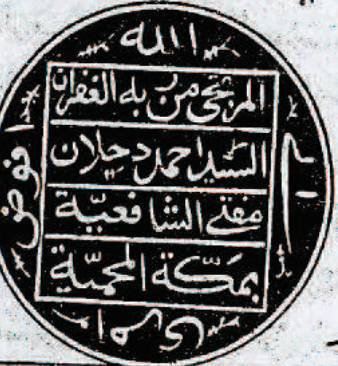 الله
المرتجى من ربه الغفران
السيد احمد دحلان
مفتي الشافعية
بمكة المحمية